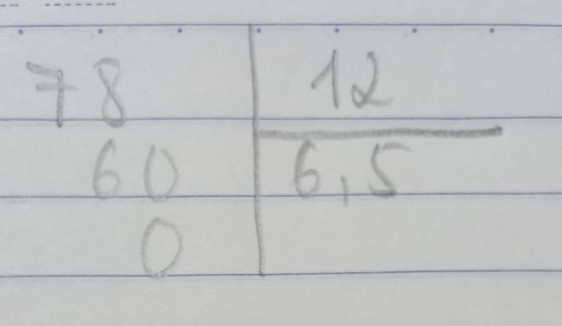 78 12
60 6,5
0